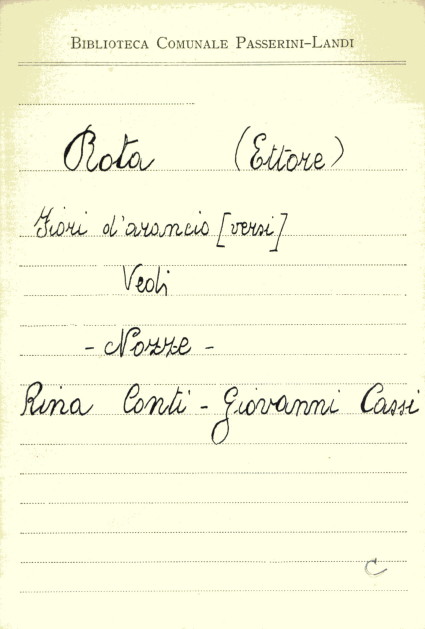 BIBLIOTECA COMUNALE PASSERINI-LANDI
Rota (Ettore)
Fiori d'arancio [versi]
Vedi
- Nozze -
Rina Conti - Giovanni Cassi
C